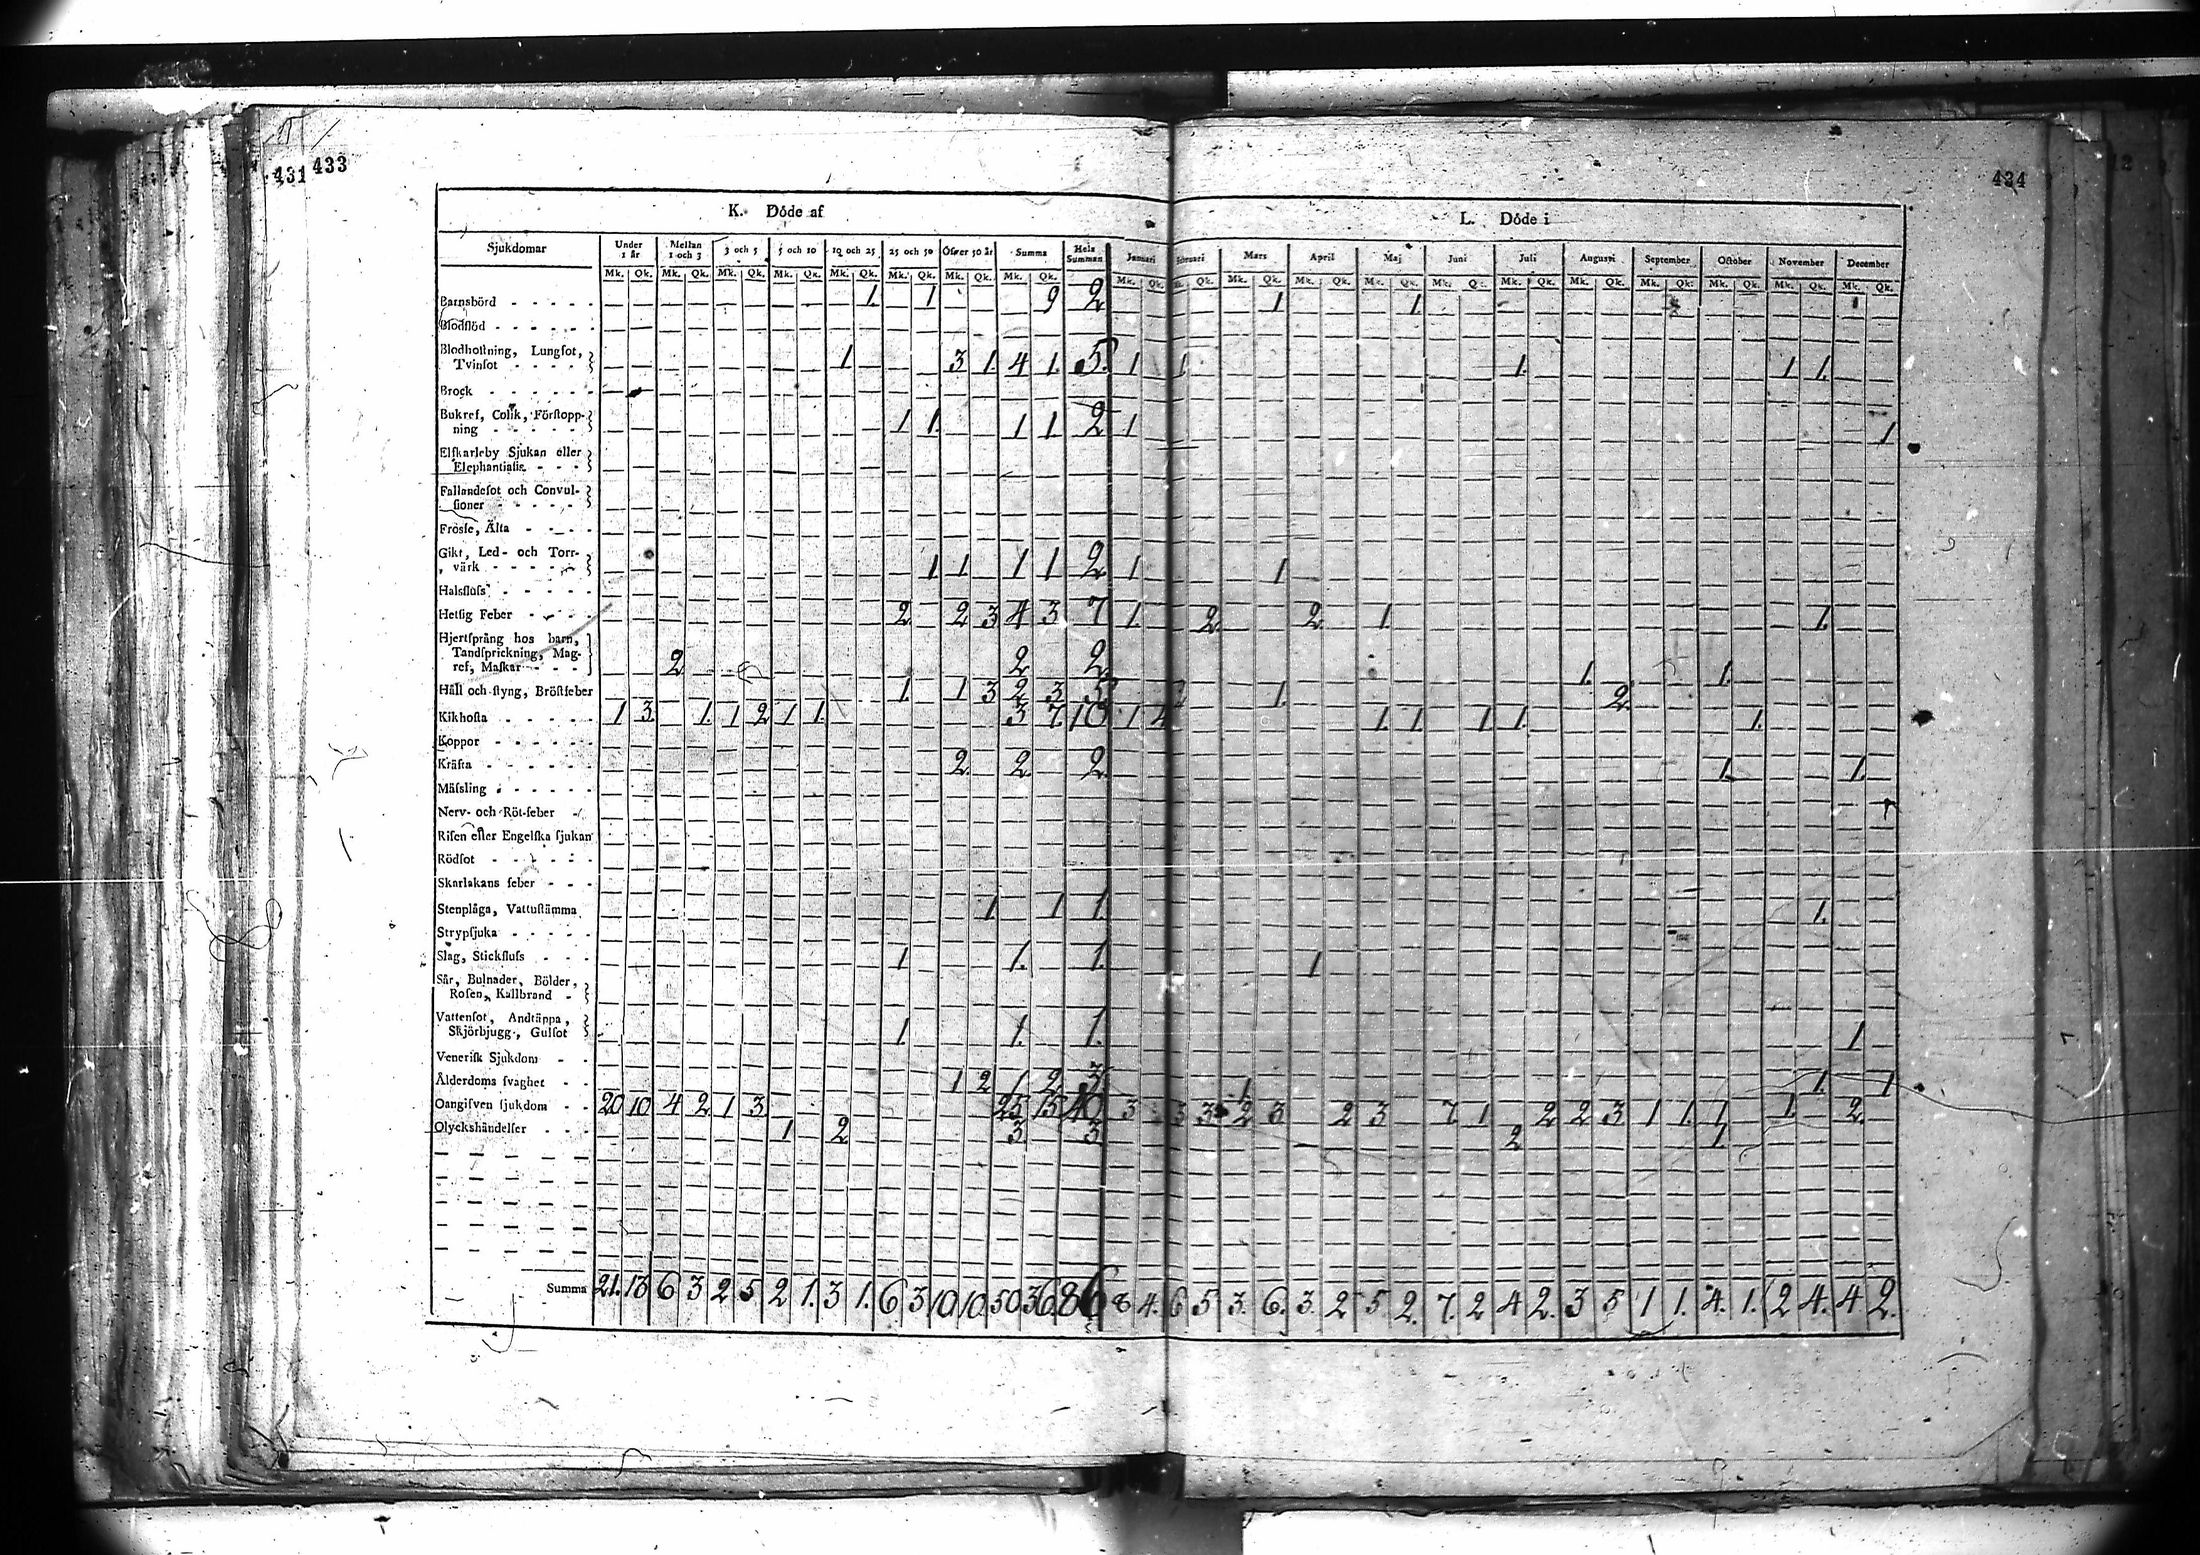 431 433
434
K. Döde af
L. Döde i
Sjukdomar Under 1 år Mellan 1 och 3 3 och 5 5 och 10 10 och 25 25 och 50 Öfwer 50 år Summa Hela Summan Januari Februari Mars April Maj Juni Juli Augusti September October November December
Mk. Qk. Mk. Qk. Mk. Qk. Mk. Qk. Mk. Qk. Mk. Qk. Mk. Qk. Mk. Qk. Mk. Qk. Mk. Qk. Mk. Qk. Mk. Qk. Mk. Qk. Mk. Qk. Mk. Qk. Mk. Qk. Mk. Qk. Mk. Qk. Mk. Qk. Mk. Qk.
Barnsbörd 1. 1 2 2 1 1.
Blodflöd
Blodhostning, Lungsot,
Tvinsot 1. 3 1. 4 1. 5. 1 1 1. 1 1.
Brock
Bukref, Colik, Förstopp-
ning 1 1. 1 1 2 1 1
Elfkarleby Sjukan eller
Elephantiasis
Fallandesot och Convul-
sioner
Frosse, Älta
Gikt, Led- och Torr-
värk 1. 1 1 1 2 1 1
Halsfluss
Hetsig Feber 2 2 3 4 3 7 1. 2 2 1. 1.
Hjertsprång hos barn,
Tandsprickning, Mag-
ref, Maskar 2 2 2 1. 1.
Håll och styng, Bröstfeber 1. 1 3 2 3 5 1. 2
Kikhosta 1 3 1. 1 2 1 1. 3 7. 10 1 4 1. 1. 1 1. 1.
Koppor
Kräfta 2 2 2 1. 1.
Mässling
Nerv- och Röt-feber
Risen eller Engelska sjukan
Rödsot
Skarlakans feber
Stenplåga, Vattustämma 1. 1 1. 1.
Strypsjuka
Slag, Stickfluss 1 1. 1. 1
Sår, Bulnader, Bölder,
Rosen, Kallbrand
Vattensot, Andtäppa,
Skjörbjugg, Gulsot 1 1. 1. 1
Venerisk Sjukdom
Ålderdoms svaghet 1 2 1 2 3 1 1. 1
Oangifven sjukdom 20 10 4 2 1 3 25 15 40 3 3 3 2 3 2 3 7. 1 2 2 3 1 1. 1 1. 2
Olyckshändelser 1 2 3 3 2 1.
Summa 21. 13 6 3 2 5 2 1. 3 1. 6 3 10 10 50 36. 86 8 4. 6 5 3. 6. 3. 2 5 2. 7. 2 4 2. 3 5 1 1. 4. 1. 2 4. 4 2.